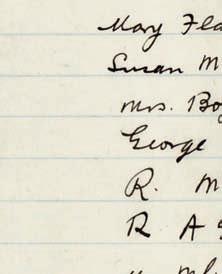 Mary Fla
Susan M
Mrs. Bo
George
R. M
R A